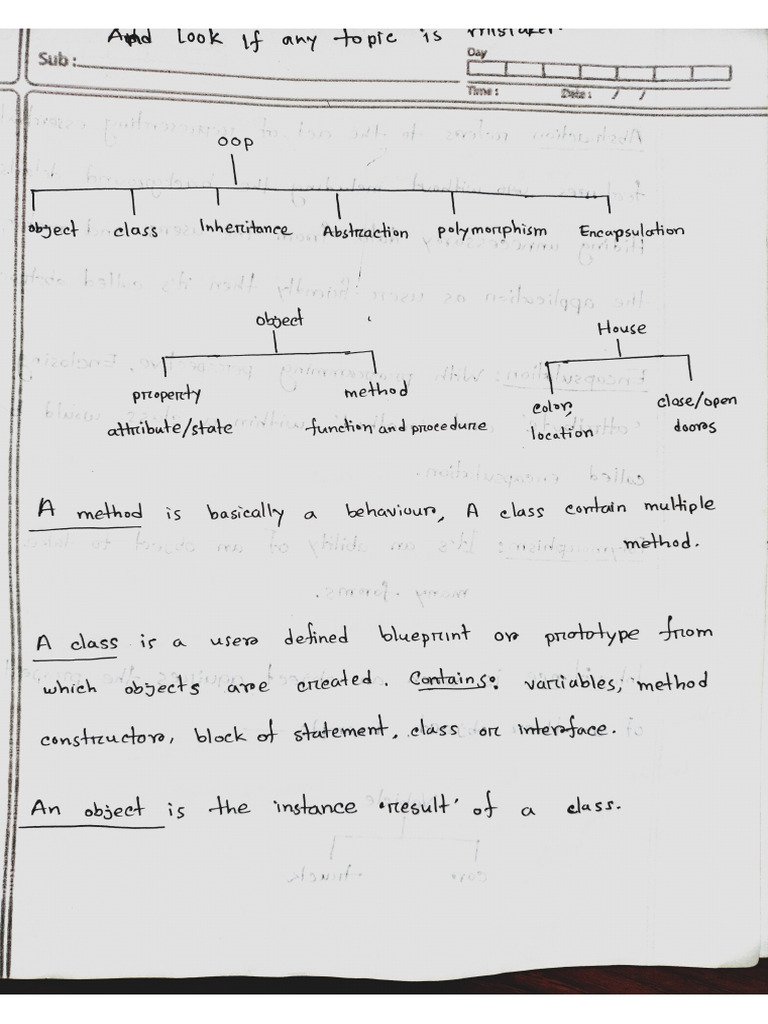 And look if any topic is
Sub:
Day
Time: Date: / /
OOP
object class Inheritance Abstraction polymorphism Encapsulation
object
House
property method
color, close/open
attribute/state function and procedure location doors
A method is basically a behaviour, A class contain multiple
method.
A class is a user defined blueprint or prototype from
which objects are created. Contains: variables, method
constructor, block of statement, class or interface.
An object is the instance 'result' of a class.